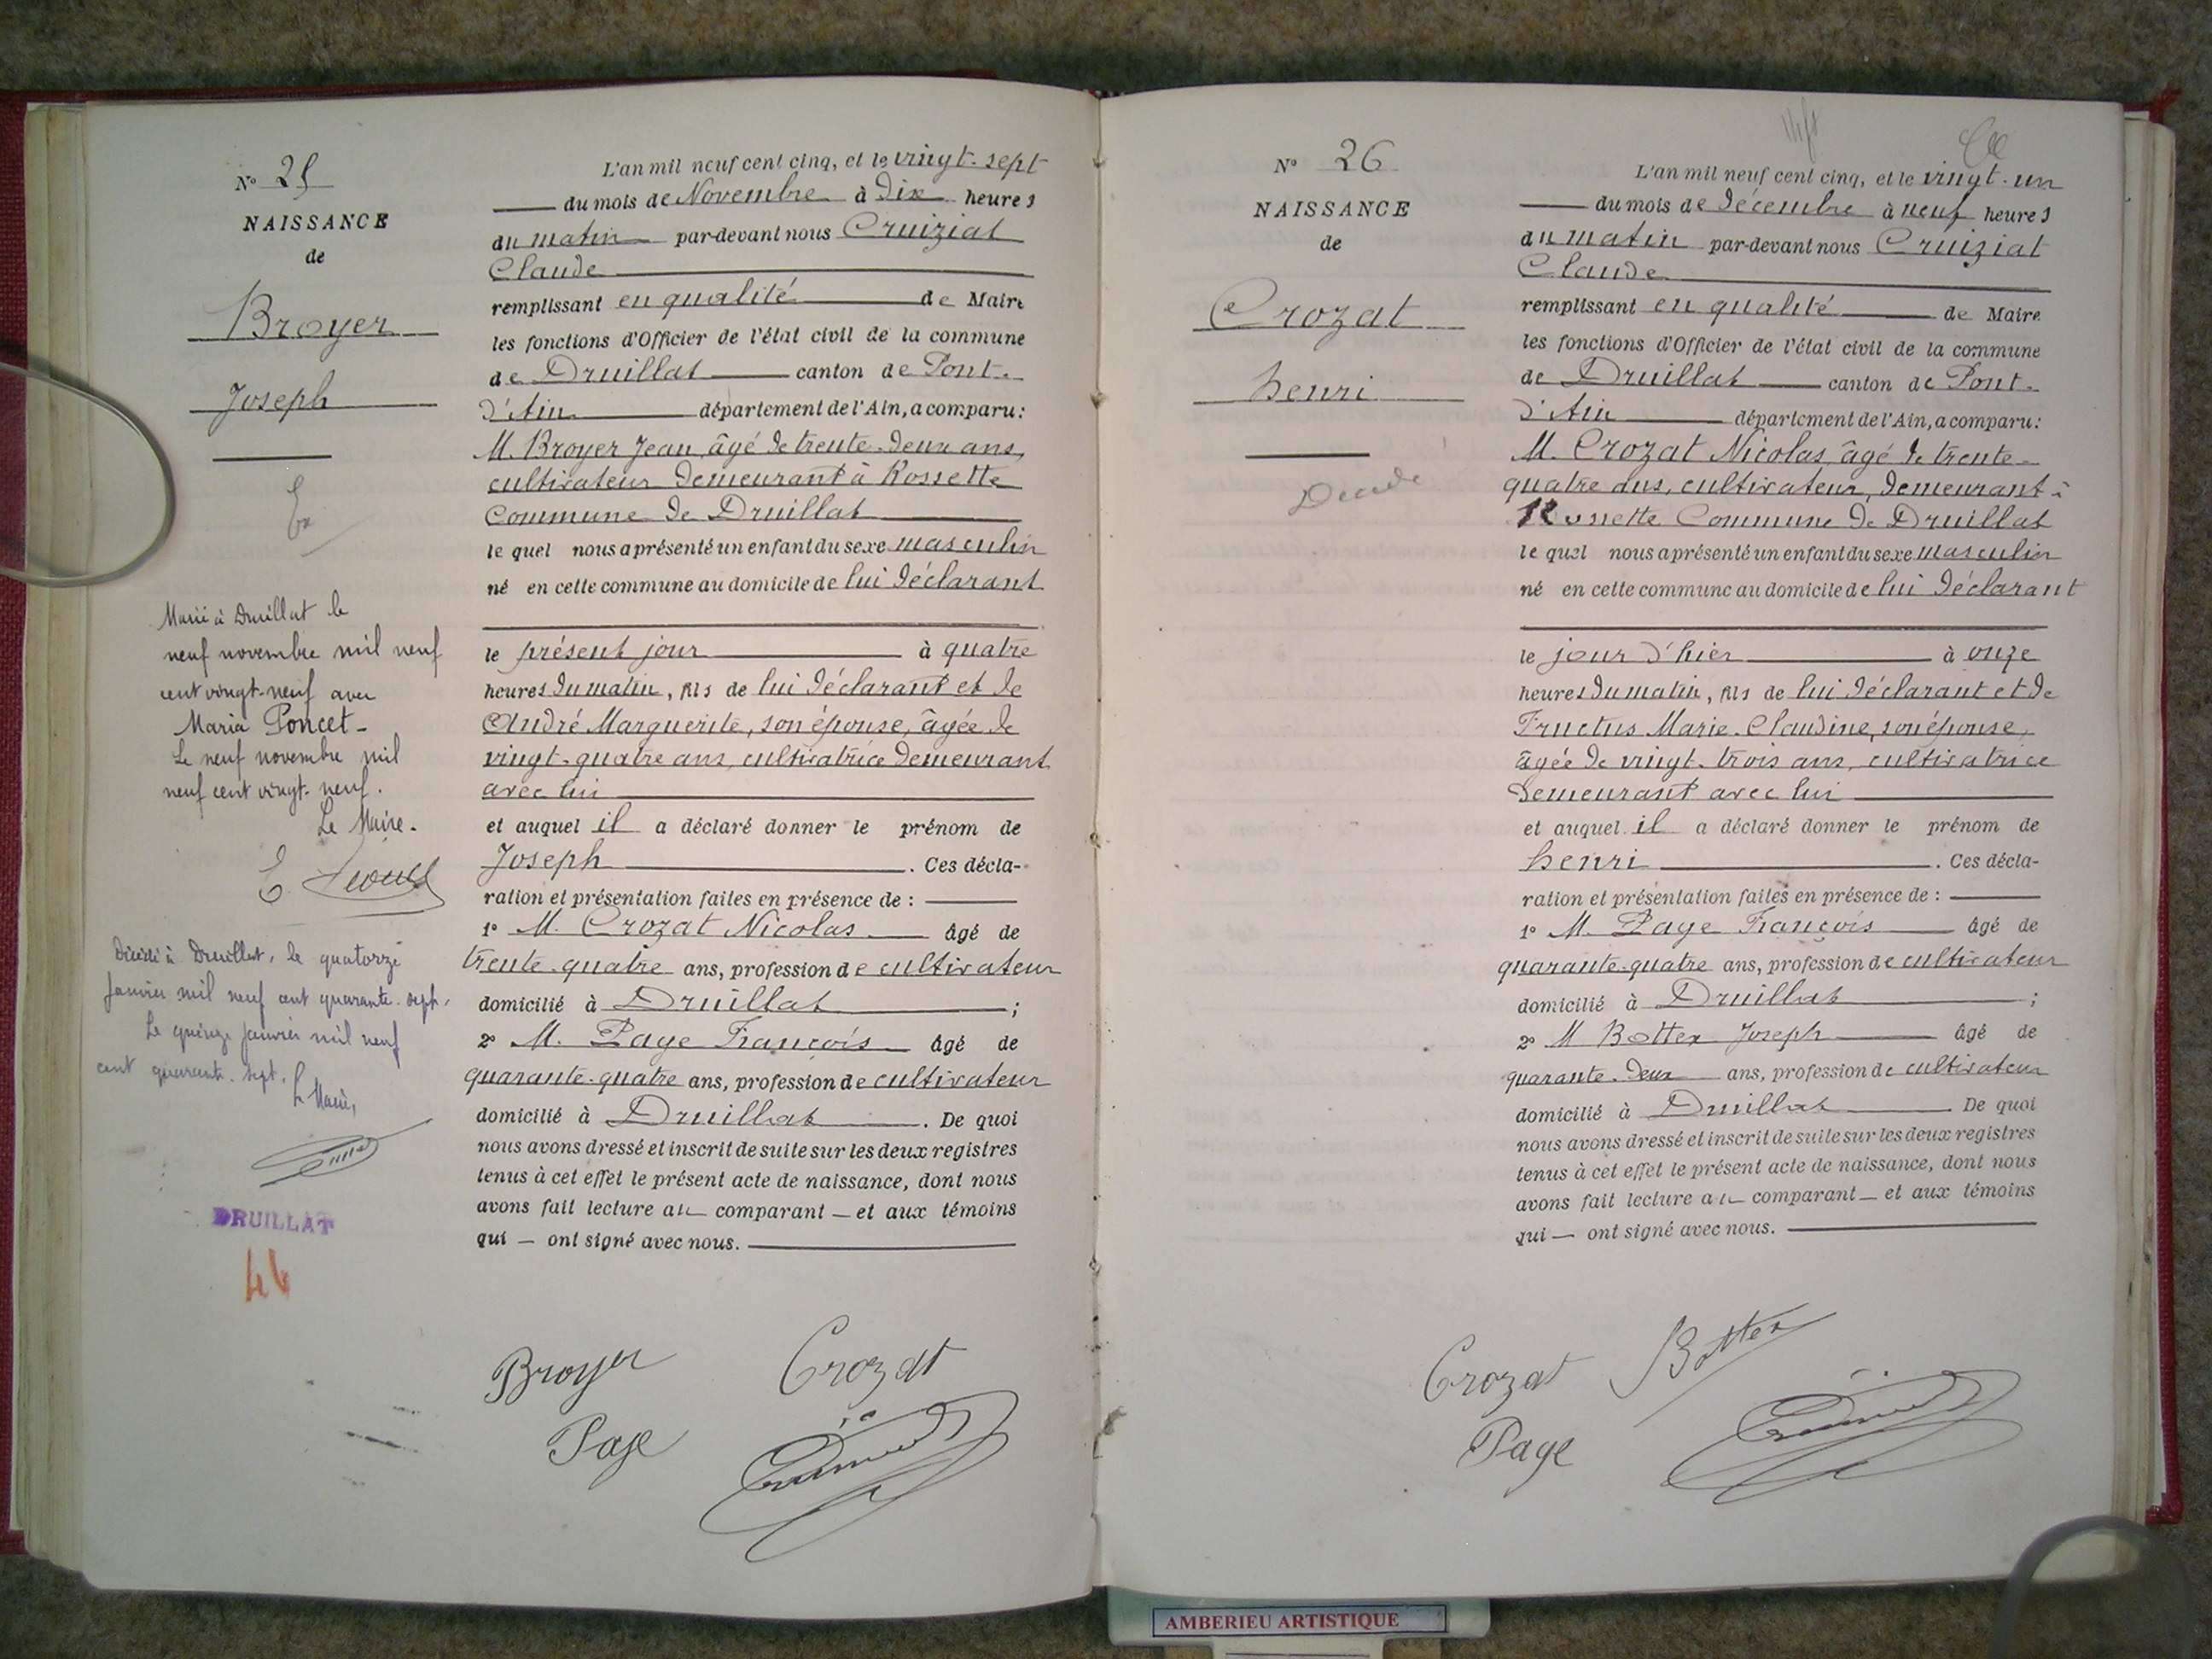 N° 25
NAISSANCE
de
Broyer
Joseph
Marié à Druillat le
neuf novembre mil neuf
cent vingt-neuf avec
Maria Poncet-
Le neuf novembre mil
neuf cent vingt-neuf.
Le Maire.
Décédé à Druillat, le quatorze
Janvier mil neuf cent quarante-sept.
Le quinze Janvier mil neuf
cent quarante-sept.
Le Maire,
DRUILLAT
L'an mil neuf cent cinq, et le vingt-sept
du mois de Novembre à Dix heures
du matin par-devant nous Cruiziat
Claude
remplissant en qualité de Maire
les fonctions d'Officier de l'état civil de la commune
de Druillat canton de Pont-
d'Ain département de l'Ain, a comparu:
M. Broyer Jean, âgé de trente-deux ans,
cultivateur demeurant à Rossette
Commune de Druillat
le quel nous a présenté un enfant du sexe masculin
né en cette commune au domicile de lui déclarant
le présent jour à quatre
heures du matin, fils de lui déclarant et de
André Marguerite, son épouse, âgée de
vingt-quatre ans, cultivatrice demeurant
avec lui
et auquel il a déclaré donner le prénom de
Joseph. Ces décla-
ration et présentation faites en présence de :
1° M. Crozat Nicolas âgé de
trente-quatre ans, profession de cultivateur
domicilié à Druillat ;
2° M. Page François âgé de
quarante-quatre ans, profession de cultivateur
domicilié à Druillat. De quoi
nous avons dressé et inscrit de suite sur les deux registres
tenus à cet effet le présent acte de naissance, dont nous
avons fait lecture au comparant — et aux témoins
qui — ont signé avec nous.
Broyer Crozat
Page
N° 26
NAISSANCE
de
Crozat
henri
Décédé
L'an mil neuf cent cinq, et le vingt-un
du mois de décembre à neuf heures
du matin par-devant nous Cruiziat
Claude
remplissant en qualité de Maire
les fonctions d'Officier de l'état civil de la commune
de Druillat canton de Pont-
d'Ain département de l'Ain, a comparu:
M. Crozat Nicolas, âgé de trente-
quatre ans, cultivateur, demeurant à
Rossette Commune de Druillat
le quel nous a présenté un enfant du sexe masculin
né en cette commune au domicile de lui déclarant
le jour d'hier à onze
heures du matin, fils de lui déclarant et de
Fructus Marie-Claudine, son épouse,
âgée de vingt-trois ans, cultivatrice
demeurant avec lui
et auquel il a déclaré donner le prénom de
henri. Ces décla-
ration et présentation faites en présence de :
1° M. Page François âgé de
quarante-quatre ans, profession de cultivateur
domicilié à Druillat ;
2° M Bottex Joseph âgé de
quarante-deux ans, profession de cultivateur
domicilié à Druillat De quoi
nous avons dressé et inscrit de suite sur les deux registres
tenus à cet effet le présent acte de naissance, dont nous
avons fait lecture au comparant — et aux témoins
qui — ont signé avec nous.
Crozat Bottex
Page
AMBERIEU ARTISTIQUE